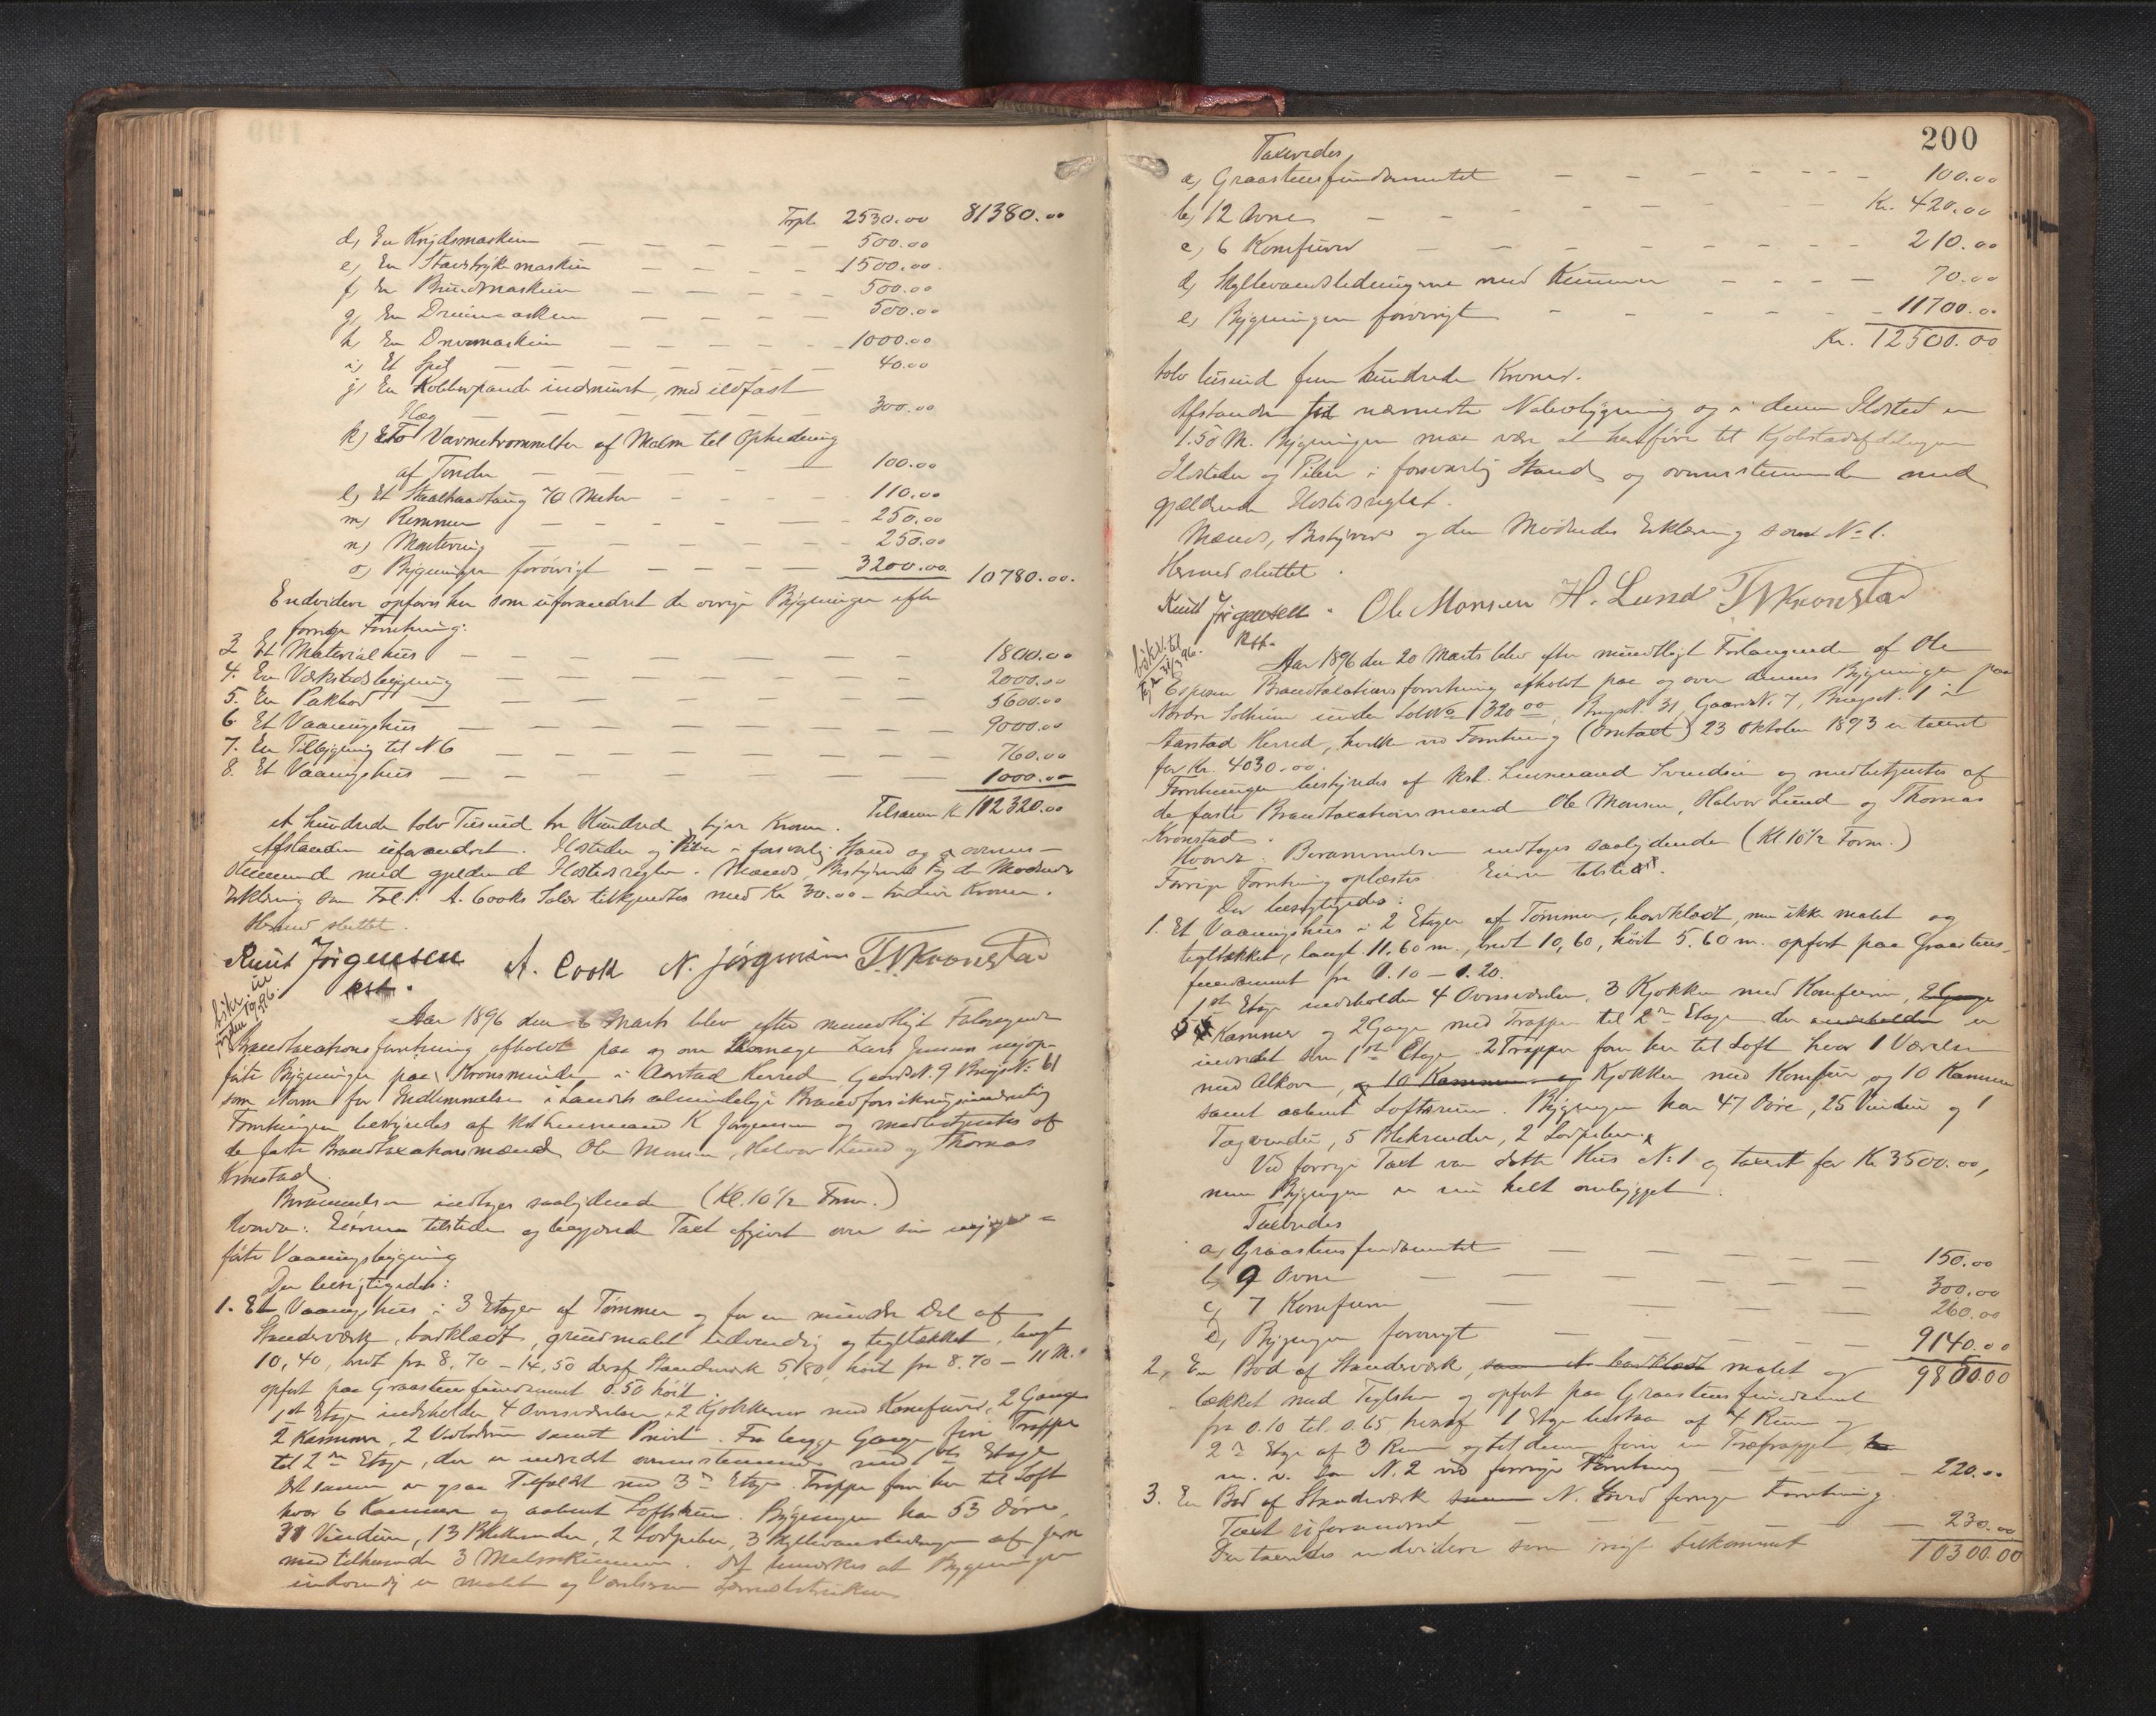 Trpt. 2530.00 81380.00
d, En Knivsmaskin — 500.00
e, En Stavstrykemaskin — 1500.00
f, En Bundmaskin — 500.00
g, En Dreiemaskin — 500.00
h, En Drivmaskin — 1000.00
i, Et Spil — 40.00
j, En Kobberpande indmuret, med ildfast
300.00
k, To Varmetrommler af Malm til Ophedning
af Tønder — 100.00
l, Et Staaltraadtaug 70 Meter — 110.00
m, Remmer — 250.00
n, Montering — 250.00
o, Bygningen forøvrigt — 3200.00 10780.00
Endvidere opføres her som uforandret de øvrige Bygninger efter
forrige Forretning:
3 Et Materialhus — 1800.00
4. En Værkstedsbygning — 2000.00
5. En Pakbod — 5600.00
6 Et Vaaningshus — 9000.00
7. En Tilbygning til N 6 — 760.00
8. Et Vaaningshus — 1000.00
Tilsamm. Kr 112320.00
et hundrede tolv Tusind tre Hundred tyve Kroner.
Afstanden uforandret. Ildsteder og Piber i forsvarlig Stand og overens-
stemmende med gjeldende Ildstedsregler. Mænds, Bestyrerens og de Mødendes
Erklæring som Fol 1. A. Cooks Salær tilkjendtes med Kr 30.00 – tredive Kroner.
Hermed sluttet.
Knut Jørgensen A. Cook N. Jørgensen T. N. Kronstad
kst.
Aar 1896 den 6 Marts blev efter mundtligt Forlangende
Brandtaxationsforretning afholdt paa og over Lars Jensens nyop-
førte Bygninger paa Kronsminde i Aarstad Herred Gaards N. 9 Brugs N. 61
som for Indlemmelse i Landets almindelige Brandforsikringsindretning
Forretningen bestyredes af kst Lensmand K Jørgensen og medbetjentes af
de faste Brandtaxationsmænd Ole Monsen, Halvor Lund og Thomas
Kronstad
Berammelsen indtages saalydende (Kl. 10½ Form.)
Hvorda: Eieren tilstede og begjærede Taxt afgivet over sin nyop-
førte Vaaningsbygning
Der besigtigedes:
1. Et Vaaningshus i 3 Etager af Tømmer og for en mindre Del af
Standerværk, bordklædt, grundmalet udvendig og tegltækket, langt
10,40, bredt fra 8.70 – 14,50 deraf Standerværk 5,80, høit fra 8.70 – 11 M.
opført paa Graastensfundament 0.50 høit.
1ste Etage indeholder 4 Ovnsværelser, 2 Kjøkkener med Komfurer, 2 Gange
2 Kammer, 2 samt Privet. Fra begge Gange fører Trappe
til 2den Etage, der er indredet overensstemmende med 1ste Etage
Det samme er ogsaa Tilfældet med 3de Etage. Trappe fører her til Loft
hvor 6 Kammer og aabent Loftsrum. Bygningen har 53 Døre,
31 Vinduer, 13 Blikrender, 2 Lodpiber, 3 Skyllevandsledninger af Jern
med tilhørende 3 Metalkummer. Det bemærkes at Bygningen
indvendig er malet og Værelserne
200
Taxeredes
a, Graastensfundamentet — 100.00
b, 12 Ovne — Kr. 420.00
c, 6 Komfurer — 210.00
d, Skyllevandsledningerne med Kummer — 70.00
e, Bygningen forøvrigt — 11700.00
Kr. 12500.00
tolv tusind fem hundrede Kroner.
Afstanden til nærmeste Nabobygning og i denne Ildsted er
1.50 M. Bygningen maa være at henføre til Kjøbstadafdelingen
Ildsteder og Piber i forsvarlig Stand og overensstemmende med
gjældende Ildstedsregler.
Mænds, Bestyrers og den Mødendes Erklæring som N. 1.
Hermed sluttet.
Knut Jørgensen. Ole Monsen H. Lund T. N. Kronstad
kst.
Aar 1896 den 20 Marts blev efter mundtligt Forlangende af Ole
Espesen Brandtaxationsforretning afholdt paa og over dennes Bygninger paa
Nordre Solheim under Løbe No 1320.00, Brugs N. 31, Gaards N. 7, Brugs N. 1 i
Aarstad Herred, hvilke ved Forretning (Omtaxt) 23 Oktober 1893 er taxeret
for Kr. 4030.00.
Forretningen bestyredes af kst. Lensmand Svendsen og medbetjentes af
de faste Brandtaxationsmænd Ole Monsen, Halvor Lund og Thomas
Kronstad.
Hvorda: Berammelsen indtages saalydende (Kl. 10½ Form.)
Forrige Forretning oplæstes. Eieren tilstede.
Der besigtigedes:
1. Et Vaaningshus i 2 Etager af Tømmer, bordklædt, men ikke malet og
tegltækket, langt 11.60 m., bredt 10,60, høit 5.60 m. opført paa Graastens-
fundament fra 0.10 – 1.20.
1ste Etage indeholder 4 Ovnsværelser, 3 Kjøkken med Komfurer, 2 Gange
5 Kammer og 2 Gange med Trapper til 2den Etage der indeholder er
indredet som 1ste Etage. 2 Trapper fører her til Loft hvor 1 Værelse
med Alkove, og 10 Kammer og Kjøkken med Komfur og 10 Kammer
samt aabent Loftsrum. Bygningen har 47 Døre, 25 Vinduer og 1
Tagvindu, 5 Blikrender, 2 Lodpiber.
Ved forrige Taxt var dette Hus N. 1 og taxeret for Kr 3500.00,
men Bygningen er nu helt ombygget.
Taxeredes
a, Graastensfundamentet — 150.00
b, 9 Ovne — 300.00
c, 7 Komfurer — 260.00
d, Bygningen forøvrigt — 9140.00
2, En Bod af Standerværk, bordklædt malet og 9850.00
tækket med Teglsten og opført paa Graastensfundament
fra 0.10 til 0.65 heraf 1 Etage bestaar af 4 Rum og
2den Etage af 3 Rum og til denne fører en Trætrappe
m. v. som N. 2 ved forrige Forretning — 220.00
3. En Bod af Standerværk N. 3 ved forrige Forretning.
Taxt uforandret — 230.00
Der taxeredes endvidere som nyt tilkommet 10300.00